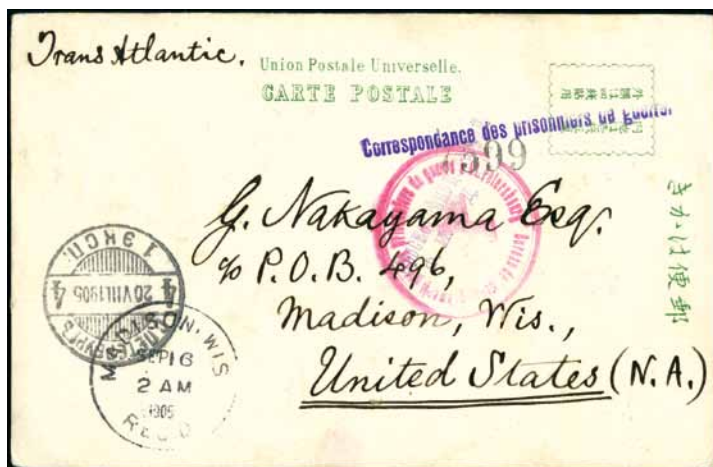 Trans Atlantic.
Union Postale Universelle.
CARTE POSTALE
Correspondance des prisonniers de guerre.
599
G. Nakayama Esq.
c/o P.O.B. 496,
Madison, Wis.,
United States (N.A.)
きかは便郵
1 ЭКСП.
4 20 VIII.1905 4
MADISON, WIS
SEP 16
2 AM
1905
REC'D